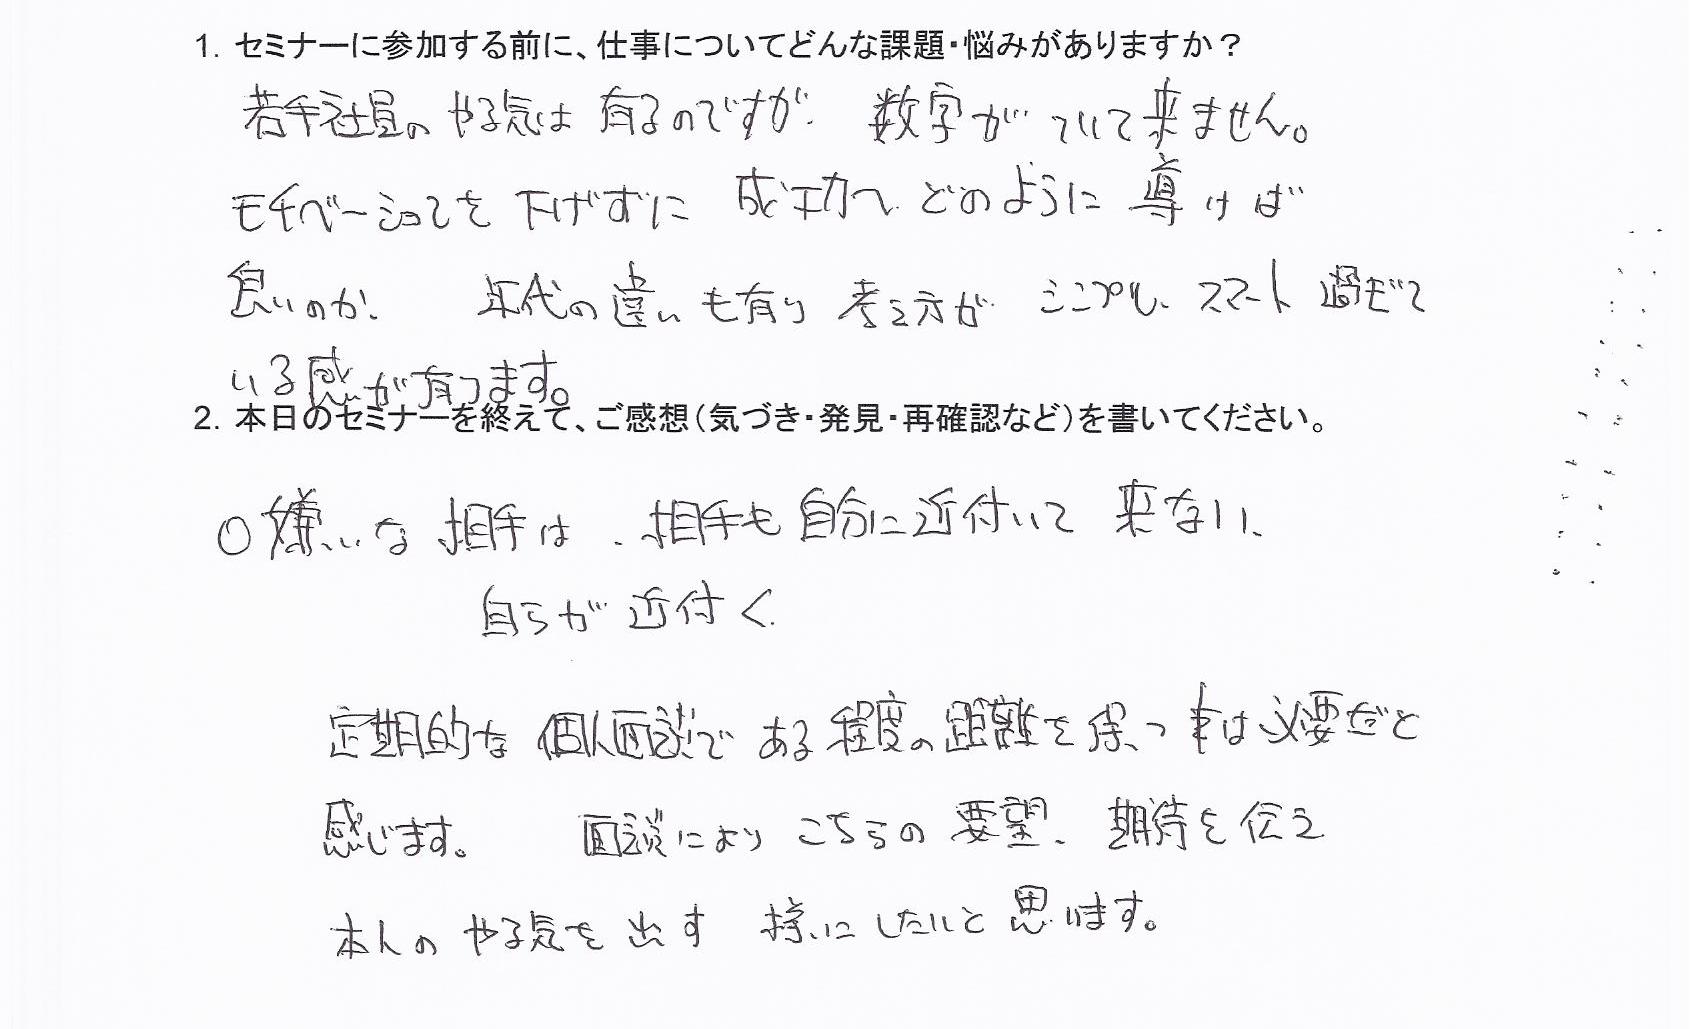 1. セミナーに参加する前に、仕事についてどんな課題・悩みがありますか？
若手社員の やる気は 有るのですが、数字が ついて来ません。
モチベーションを 下げずに 成功へ どのように 導けば
良いのか、 年代の違いも有り 考え方が シンプル、スマート 過ぎて
いる感が有ります。
2. 本日のセミナーを終えて、ご感想（気づき・発見・再確認など）を書いてください。
○嫌いな 相手は、相手も 自分に近付いて 来ない、
自らが 近付く。
定期的な 個人面談で ある程度の 距離を 保つ 事は必要だと
感じます。 面談により こちらの 要望、期待を 伝え
本人の やる気を 出す 様にしたいと 思います。